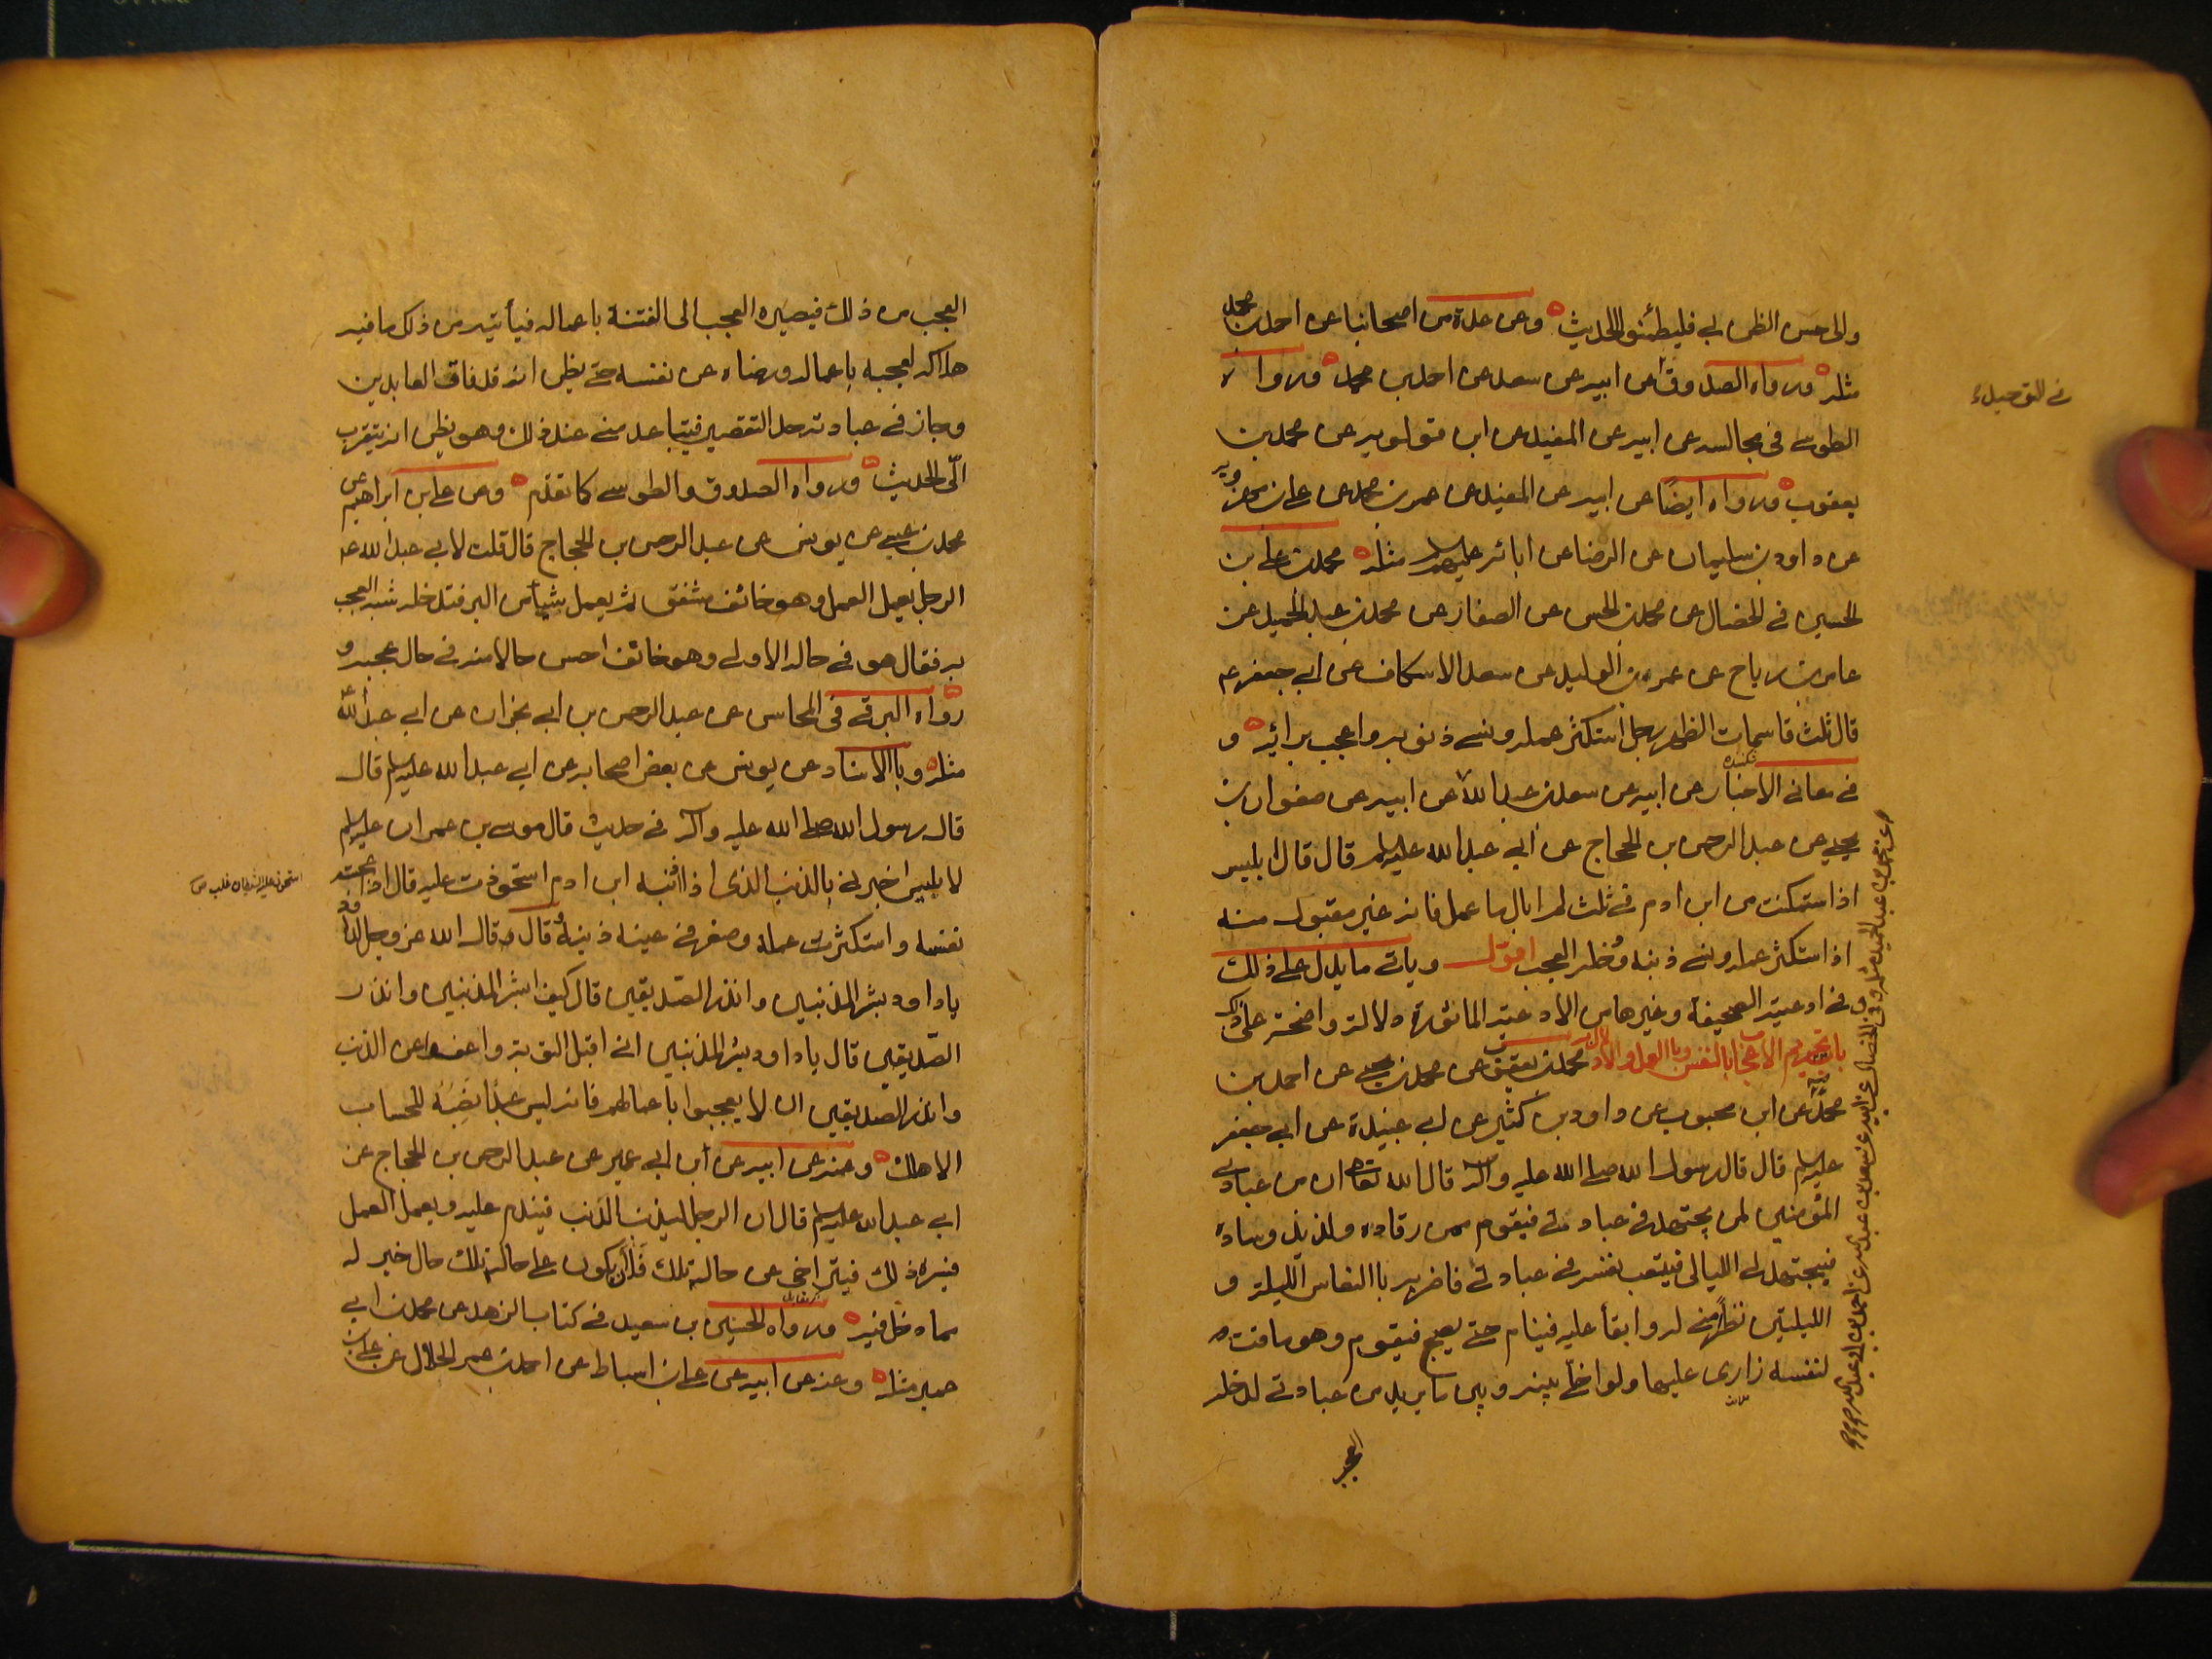 والى حسن الظن بي فليطمئنوا الحديث وعن عدة من اصحابنا عن احمد بن محمد
مثله ورواه الصدوق عن ابيه عن سعد عن احمد بن محمد ورواه
في التوحيد
الطوسي في مجالسه عن ابيه عن المفيد عن ابن قولويه عن محمد بن
يعقوب ورواه ايضًا عن ابيه عن المفيد عن عمر بن محمد عن علي بن مهرويه
عن داود بن سليمان عن الرضا عن ابائه عليهم السلام مثله محمد بن علي بن
الحسين في الخصال عن محمد بن الحسن عن الصفار عن محمد بن عبد الحميد عن
عامر بن رباح عن عمرو بن الوليد عن سعد الاسكاف عن ابي جعفر ع
قال ثلث قاصمات الظهر رجل استكثر عمله ونسي ذنوبه واعجب برائه و
في معاني الاخبار عن ابيه عن سعد بن عبد الله عن ابيه عن صفوان بن
يحيى عن عبد الرحمن بن الحجاج عن ابي عبد الله عليه السلام قال قال ابليس
اذا استمكنت من ابن ادم في ثلث لم ابال ما عمل فانه غير مقبول منه
اذا استكثر عمله ونسي ذنبه ودخله العجب اقول وياتي ما يدل على ذلك
وفي ادعية الصحيفة وغيرها من الادعية الماثورة دلالة واضحة على ذلك
باب تحريم الاعجاب بالنفس وبالعمل والادلال به محمد بن يعقوب عن محمد بن يحيى عن احمد بن
محمد عن ابن محبوب عن داود بن كثير عن ابي عبيدة عن ابي جعفر
عليه السلام قال قال رسول الله صلى الله عليه وآله قال الله تعالى ان من عبادي
المؤمنين لمن يجتهد في عبادتي فيقوم من رقاده ولذيذ وساده
فيجتهد لي الليالي فيتعب نفسه في عبادتي فاضربه بالنعاس الليلة و
الليلتين نظرًا مني له وابقاء عليه فينام حتى يصبح فيقوم وهو ماقت
لنفسه زارى عليها ولو اخلي بينه وبين ما يريد من عبادتي لدخله
العجب
العجب من ذلك فيصيره العجب الى الفتنة باعماله فيأتيه من ذلك ما فيه
هلاكه لعجبه باعماله ورضاه عن نفسه حتى يظن انه قد فاق العابدين
وجاز في عبادته حد التقصير فيتباعد مني عند ذلك وهو يظن انه يتقرب
الّي الحديث ورواه الصدوق والطوسي كما تقدم وعن علي بن ابراهيم عن
محمد بن عيسى عن يونس عن عبد الرحمن بن الحجاج قال قلت لابي عبد الله ع
الرجل يعمل العمل وهو خائف مشفق ثم يعمل شيأ من البر فتدخله شبه العجب
به فقال هو في حاله الاولى وهو خائف احسن حالا منه في حال عجبه و
رواه البرقي في المحاسن عن عبد الرحمن بن ابي نجران عن ابي عبد الله
مثله وبالاسناد عن يونس عن بعض اصحابه عن ابي عبد الله عليه السلام قال
قال رسول الله صلى الله عليه وآله في حديث قال موسى بن عمران عليه السلام
لابليس اخبرني بالذنب الذي اذا اذنبه ابن ادم استحوذت عليه قال اذا اعجبته
نفسه واستكثرت عمله وصغر في عينه ذنبه وقال قال الله عز وجل لداود
يا داود بشر المذنبين وانذر الصديقين قال كيف ابشر المذنبين وانذر
الصديقين قال يا داود بشر المذنبين اني اقبل التوبة واعفو عن الذنب
وانذر الصديقين ان لا يعجبوا باعمالهم فانه ليس عبد انصبه للحساب
الا هلك وعنه عن ابيه عن ابن ابي عمير عن عبد الرحمن بن الحجاج عن
ابي عبد الله عليه السلام قال ان الرجل ليذنب الذنب فيندم عليه ويعمل العمل
فيسره ذلك فيتراخى عن حاله تلك فلان يكون على حاله تلك حال خير له
مما دخل فيه ورواه الحسين بن سعيد في كتاب الزهد عن محمد بن ابي
عمير مثله وعنه عن ابيه عن علي بن اسباط عن احمد بن عمر الحلال عن علي بن